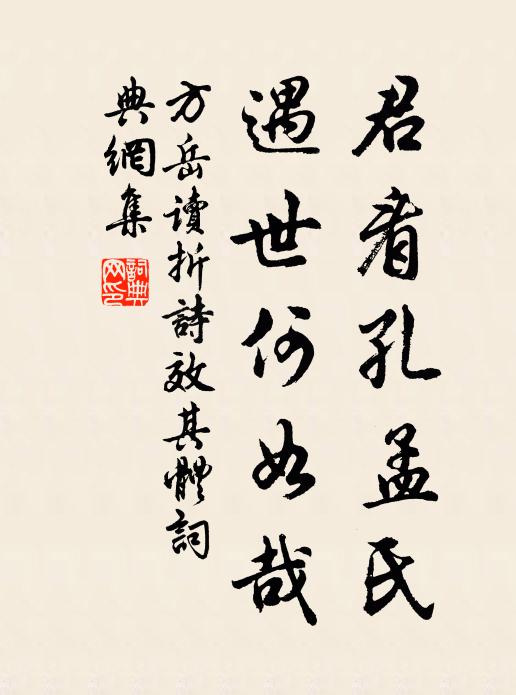 君看孔孟氏
遇世何如哉
方岳讀折詩效其體詞
典網集
詞典網印